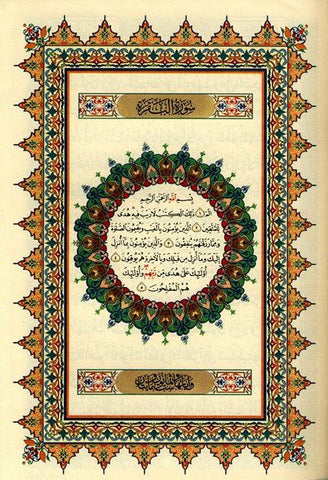 سورة البقرة
بسم الله الرحمن الرحيم
الم ١ ذلك الكتب لا ريب فيه هدى
للمتقين ٢ الذين يؤمنون بالغيب ويقيمون الصلوة
ومما رزقنهم ينفقون ٣ والذين يؤمنون بما أنزل
إليك وما أنزل من قبلك وبالآخرة هم يوقنون ٤
أولئك على هدى من ربهم وأولئك
هم المفلحون ٥